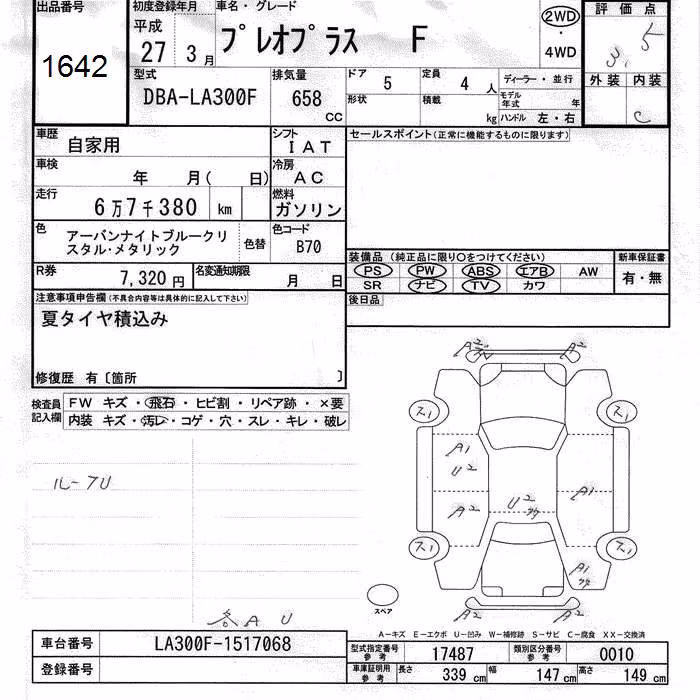 出品番号
1642
初度登録年月
平成
27 年 3 月
車名・グレード
プレオプラス F
2WD
・
4WD
評価点
3.5
外装 内装
C
型式
DBA-LA300F
排気量
658
CC
ドア
5
定員
4 人
形状
積載
kg
ディーラー・並行
モデル年式 年
ハンドル 左・右
車歴
自家用
シフト
IAT
車検
年 月( 日)
冷房
AC
走行
6万7千380 km
燃料
ガソリン
色
アーバンナイトブルークリ
スタル・メタリック
色替
色コード
B70
R券
7,320 円
名変通知期限
月 日
セールスポイント(正常に機能するものに限ります)
装備品 (純正品に限り○をつけてください)
PS PW ABS エアB AW
SR ナビ TV カワ
新車保証書
有・無
後日品
注意事項申告欄(不具合内容等は具体的に記入して下さい)
夏タイヤ積込み
修復歴 有〔箇所 〕
検査員
記入欄
FW キズ・飛石・ヒビ割・リペア跡・×要
内装 キズ・汚レ・コゲ・穴・スレ・キレ・破レ
ルーフU
各A U
A2 A2
ス1 ス1
A1
U2
A2
U2
A1
ス1 ス1
A1
A2 A2
スペア
A-キズ E-エクボ U-凹み W-補修跡 S-サビ C-腐食 XX-交換済
車台番号
LA300F-1517068
登録番号
型式指定番号
参考
17487
類別区分番号
参考
0010
車庫証明用
参考
長さ
339 cm
幅
147 cm
高さ
149 cm